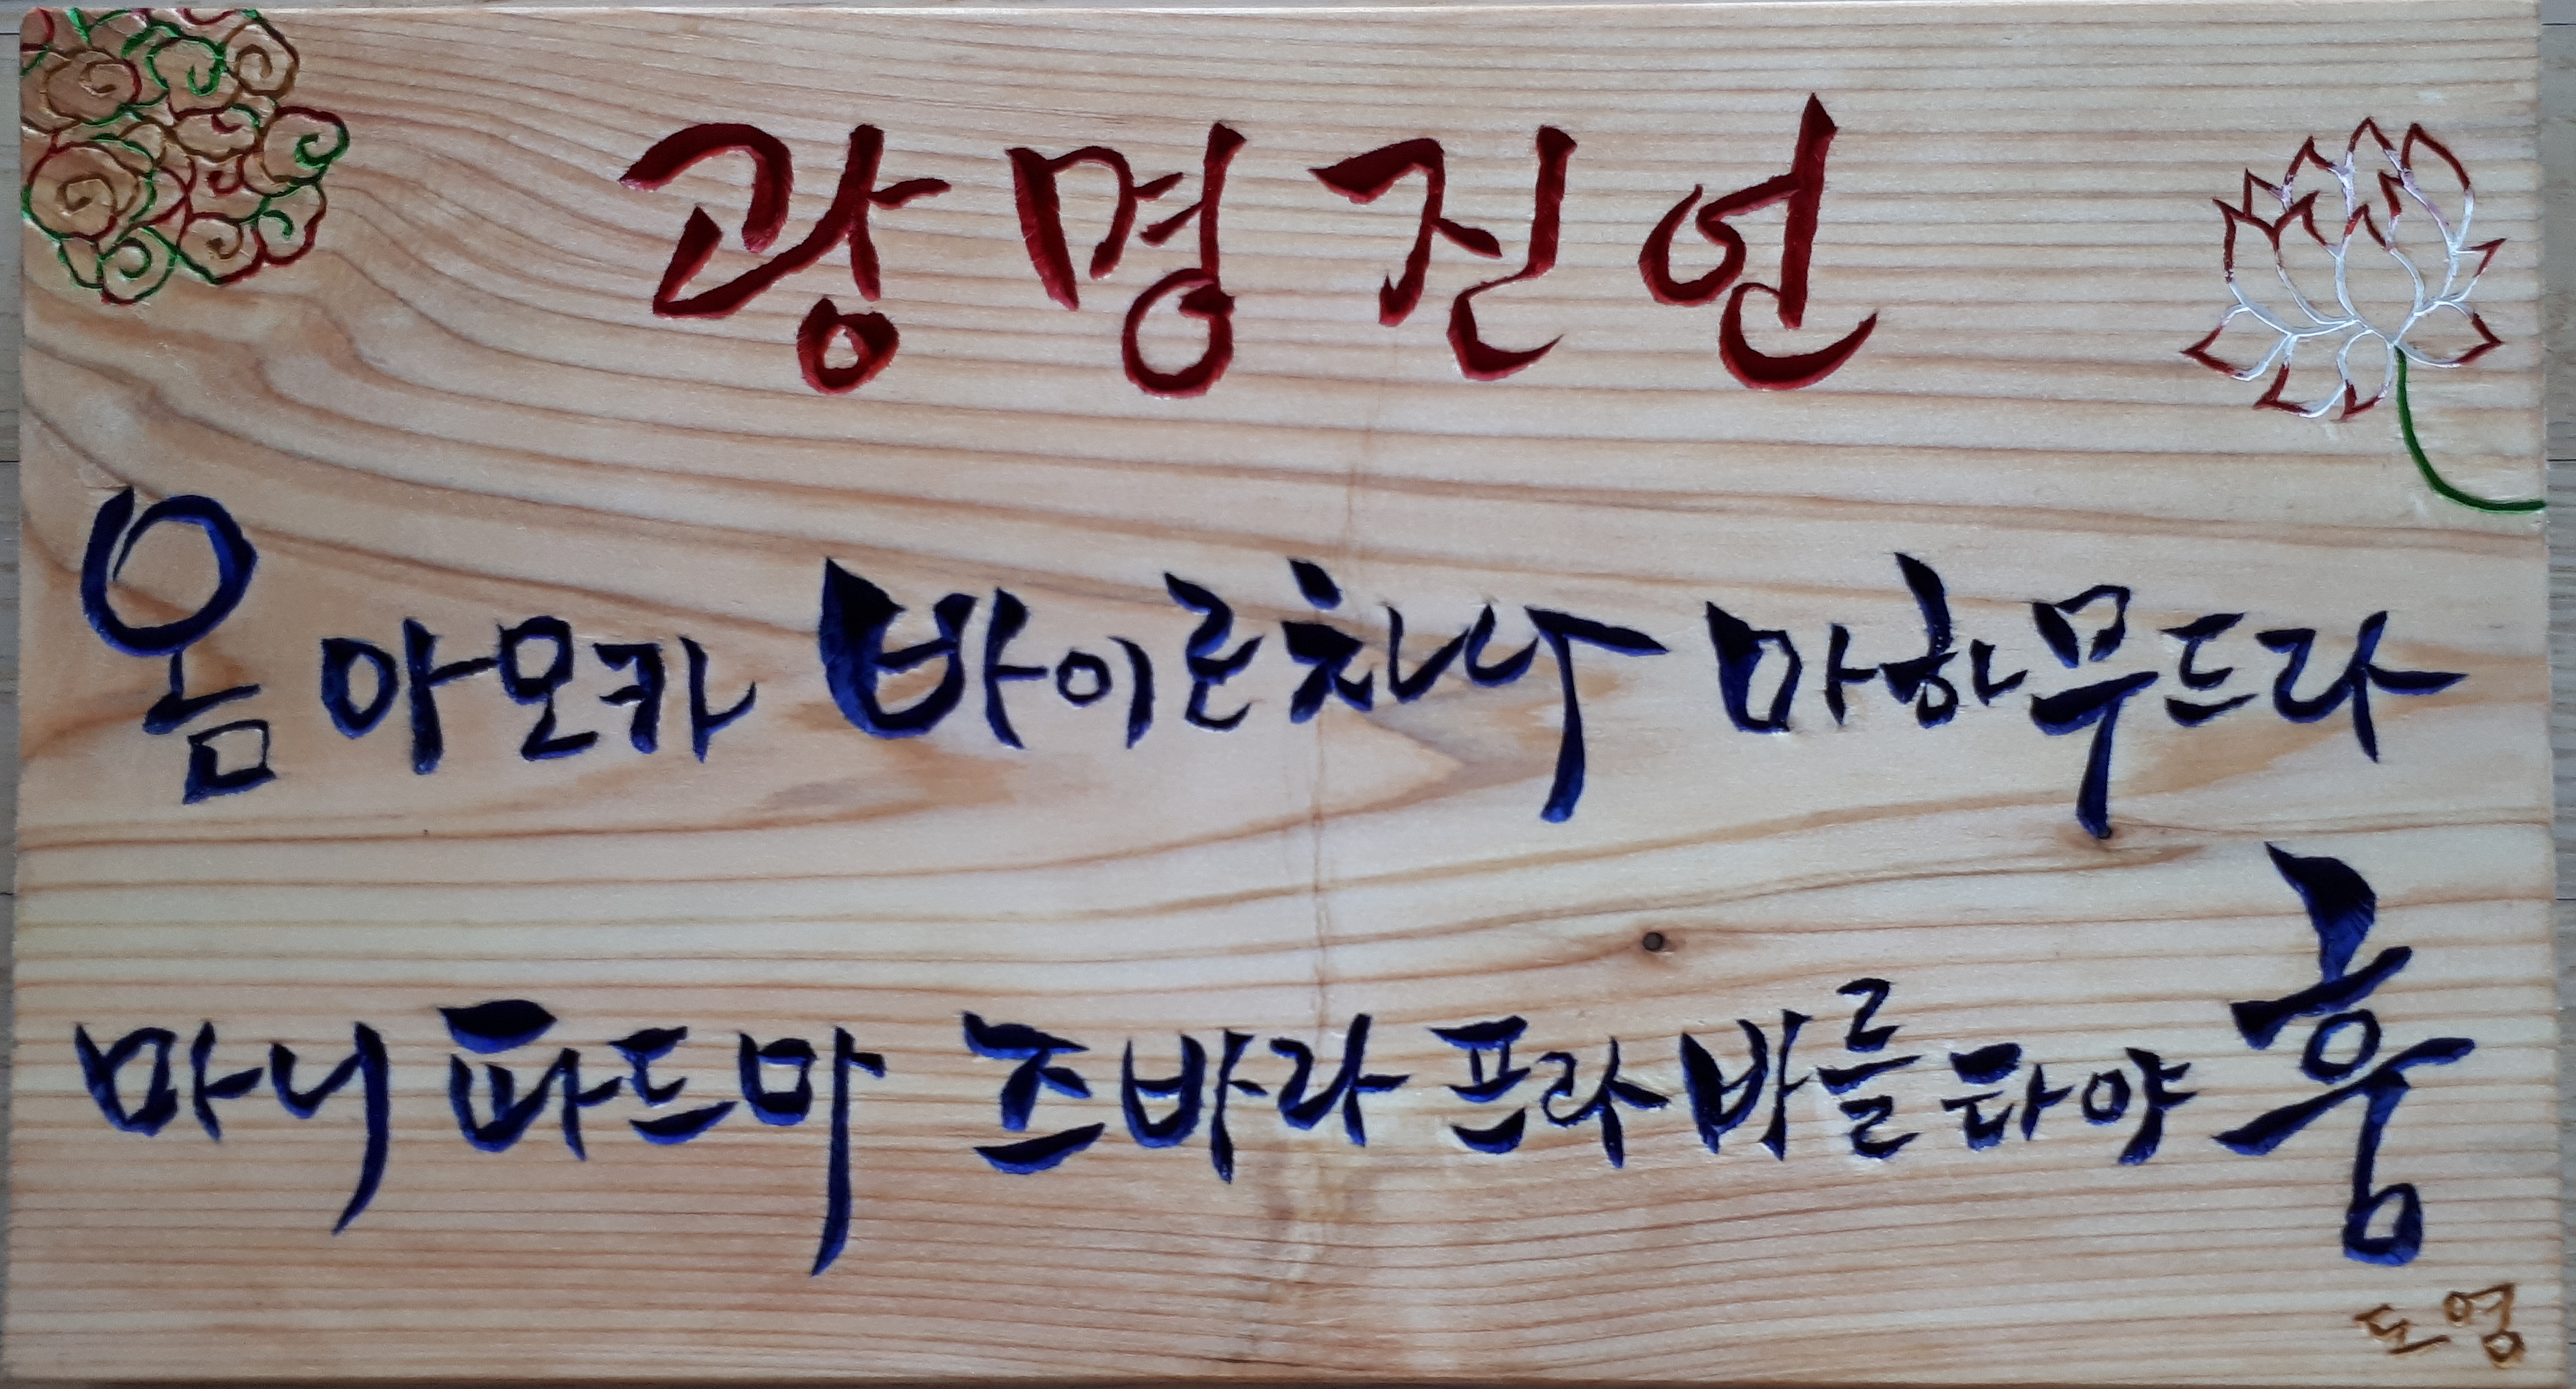 광명진언
옴 아모카 바이로차나 마하무드라
마니 파드마 즈바라 프라바를타야 훔
도영